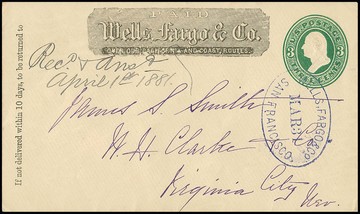 PAID
Wells, Fargo & Co.
OVER OUR CALIFORNIA AND COAST ROUTES.
U.S. POSTAGE
3 3
THREE CENTS
Recd & Ansd
April 1st 1881
If not delivered within 10 days, to be returned to
WELLS, FARGO & CO.
MAR 30
SAN FRANCISCO
James S. Smith
W. H. Clarke
Virginia City
Nev.